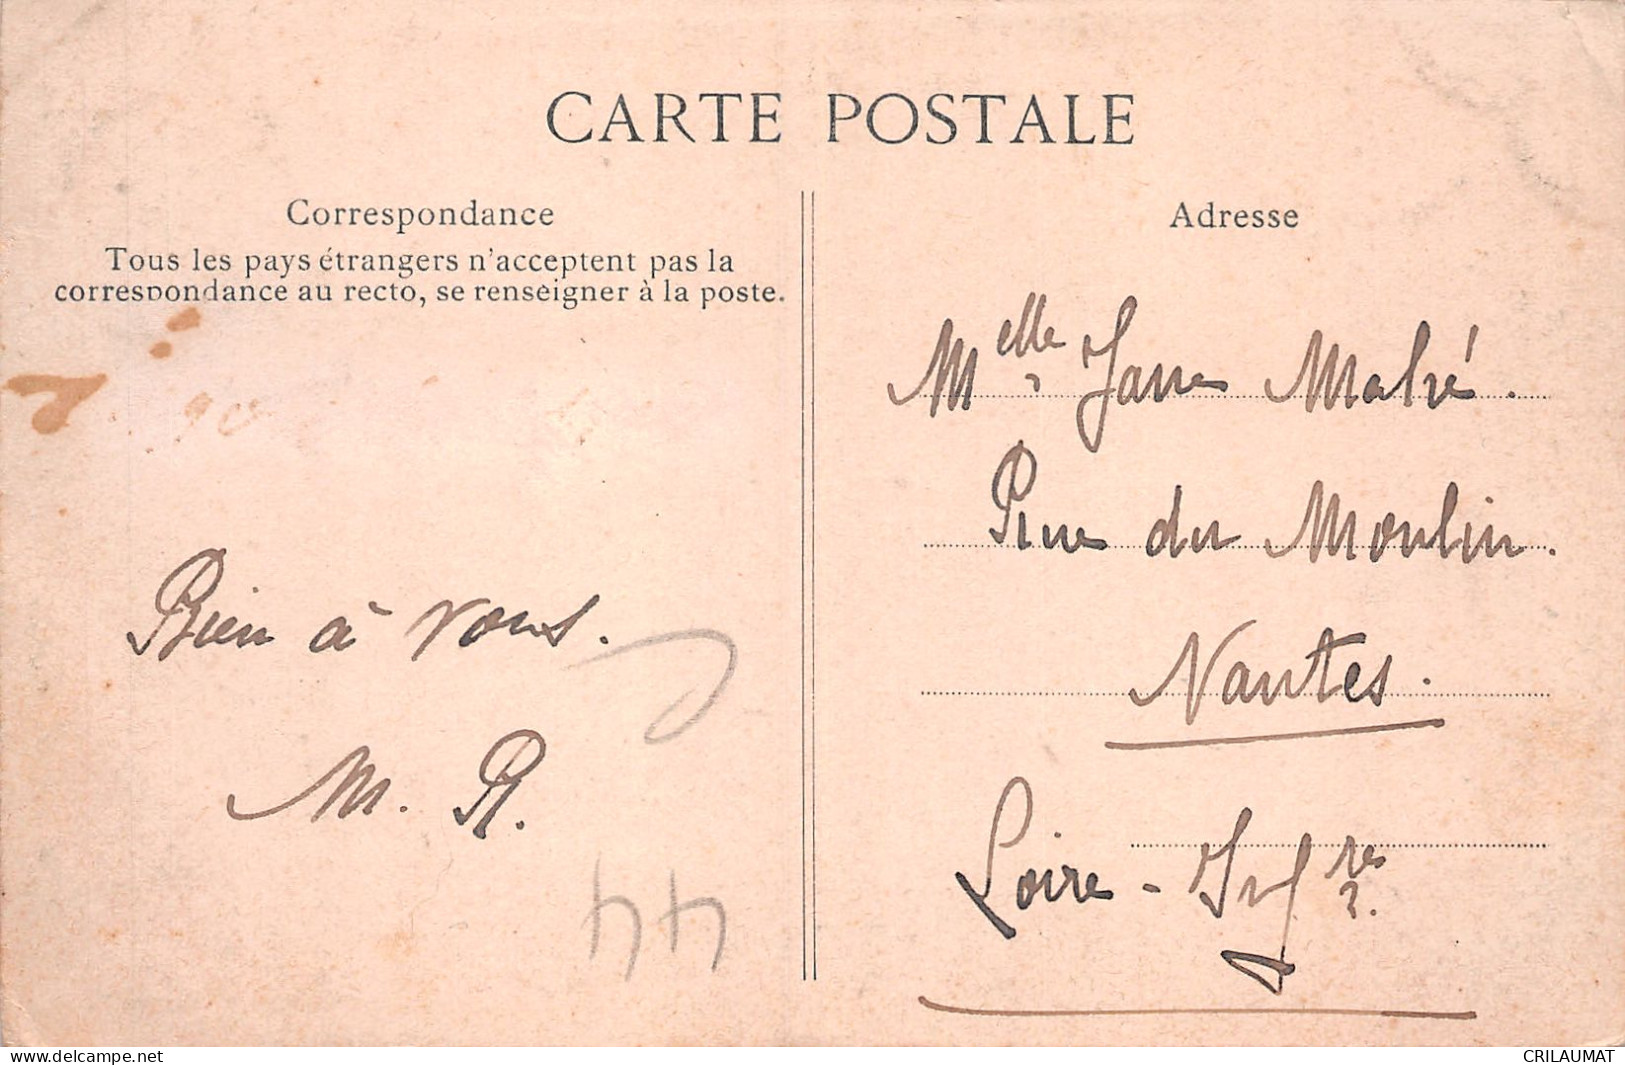 CARTE POSTALE
Correspondance
Tous les pays étrangers n'acceptent pas la
correspondance au recto, se renseigner à la poste.
Bien à vous.
M. R.
44
Adresse
Melle Jane Malré.
Rue du Moulin.
Nantes.
Loire-Infre.
www.delcampe.net
CRILAUMAT